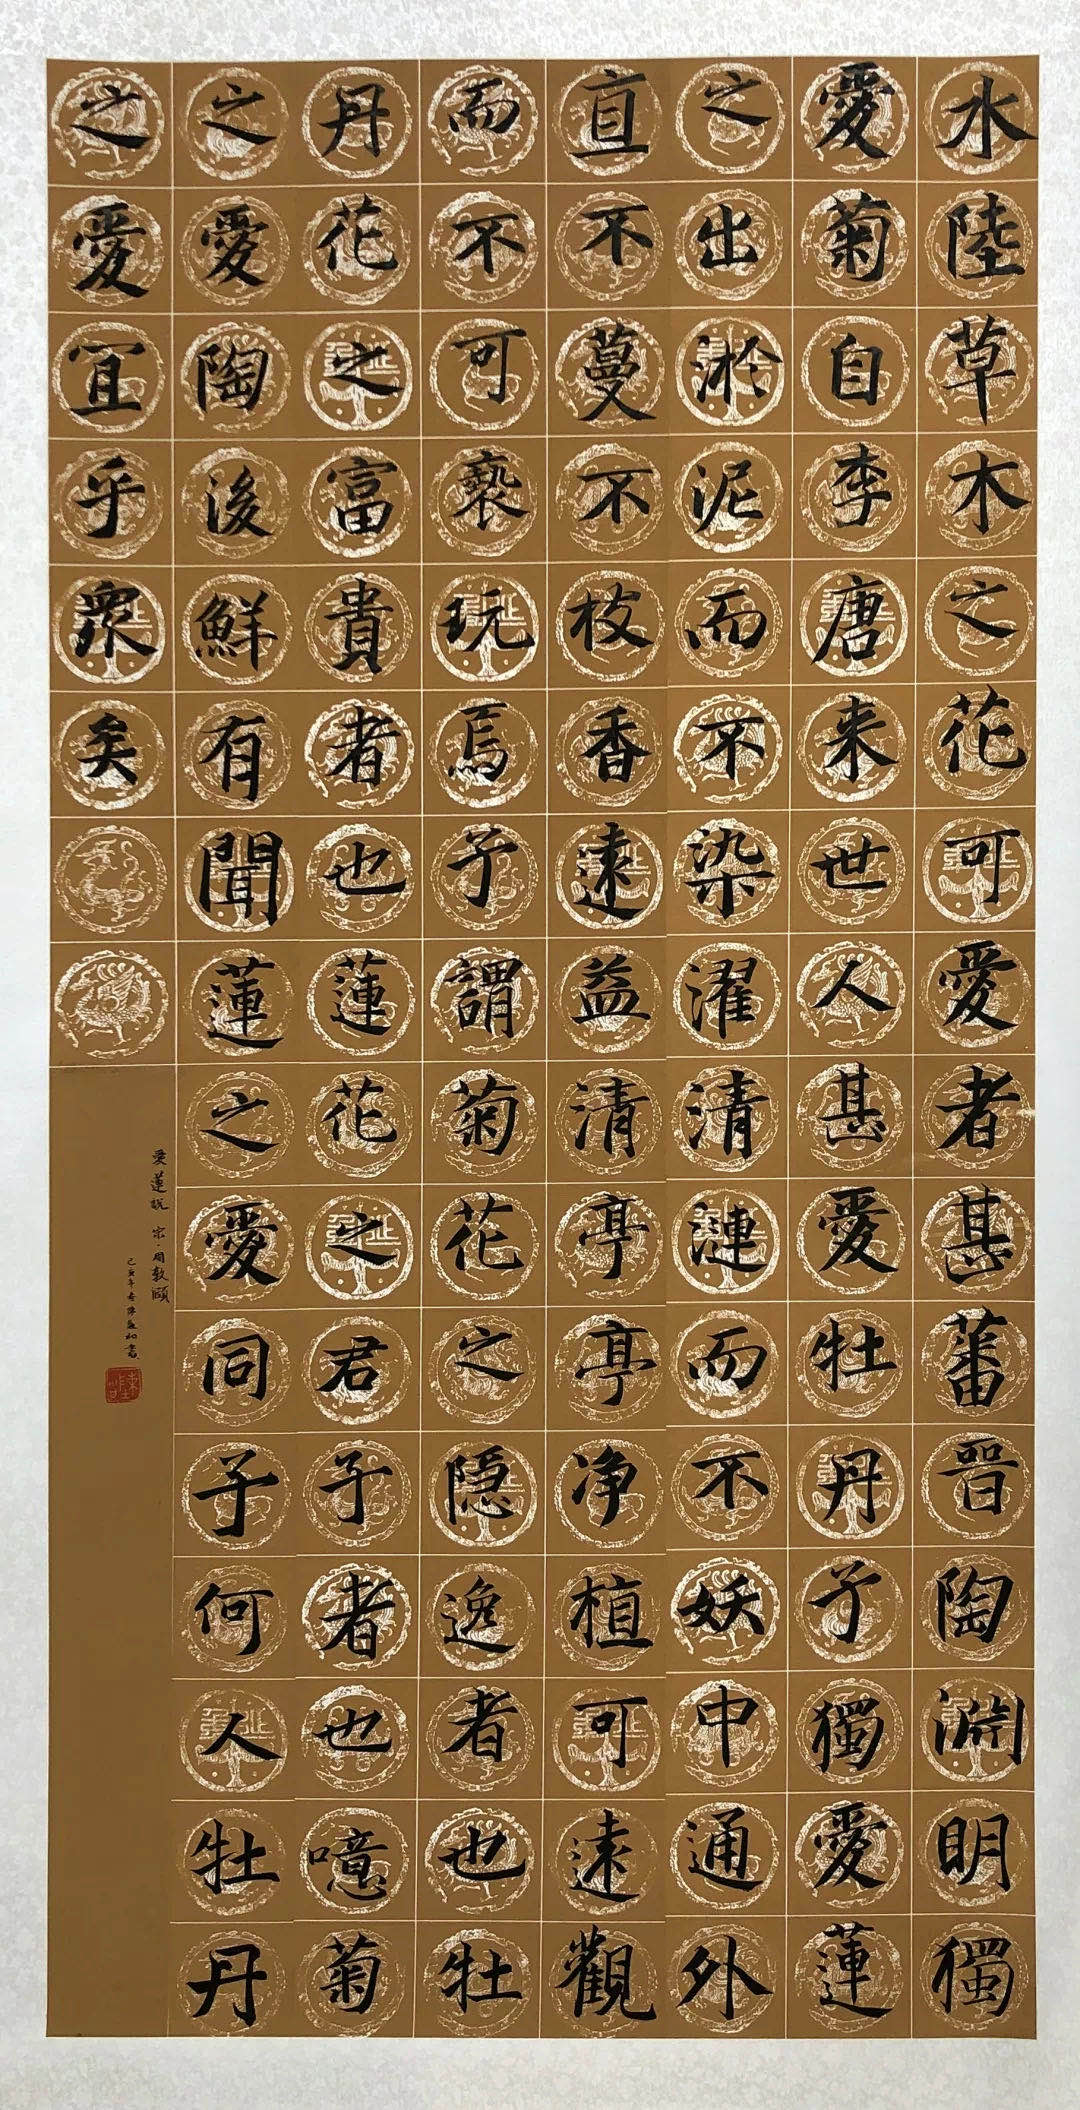 水陸草木之花可愛者甚蕃晉陶淵明獨
愛菊自李唐来世人甚愛牡丹予獨愛蓮
之出淤泥而不染濯清漣而不妖中通外
直不蔓不枝香遠益清亭亭净植可遠觀
而不可褻玩焉予謂菊花之隠逸者也牡
丹花之富貴者也蓮花之君子者也噫菊
之愛陶後鮮有聞蓮之愛同予何人牡丹
之愛宜乎衆矣
愛蓮説 宋·周敦頤
己亥年春陳